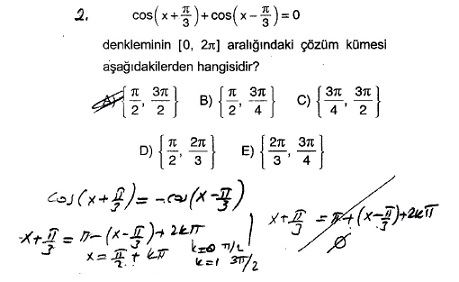 2. cos(x+π/3)+cos(x−π/3)=0
denkleminin [0, 2π] aralığındaki çözüm kümesi
aşağıdakilerden hangisidir?
A) {π/2, 3π/2} B) {π/2, 3π/4} C) {3π/4, 3π/2}
D) {π/2, 2π/3} E) {2π/3, 3π/4}
cos(x+π/3)=-cos(x-π/3)
x+π/3 = π-(x-π/3)+2kπ
x=π/2+kπ
k=0 π/2
k=1 3π/2
x+π/3 = π+(x-π/3)+2kπ
∅